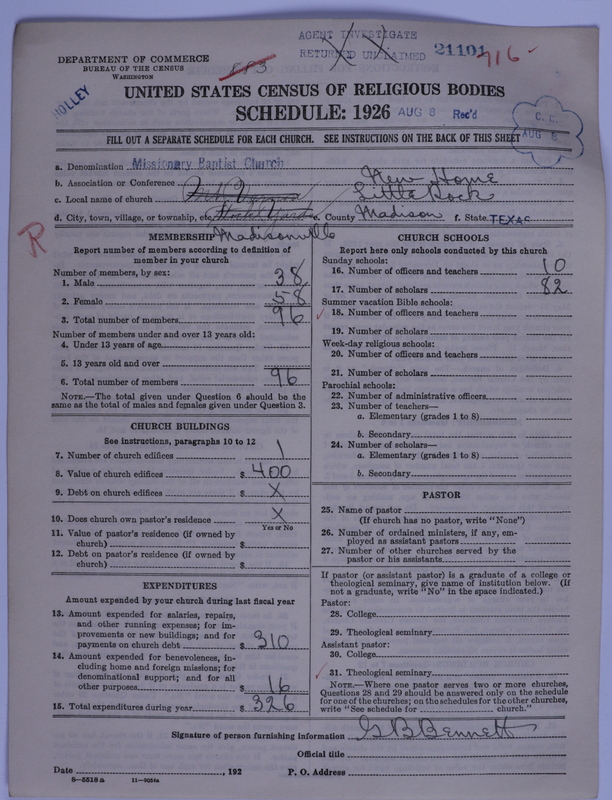 AGENT INVESTIGATE
RETURNED UNCLAIMED 21101 916-
DEPARTMENT OF COMMERCE
BUREAU OF THE CENSUS
WASHINGTON
HOLLEY
UNITED STATES CENSUS OF RELIGIOUS BODIES
SCHEDULE: 1926 AUG 6 Rec'd
C. C.
AUG 6
FILL OUT A SEPARATE SCHEDULE FOR EACH CHURCH. SEE INSTRUCTIONS ON THE BACK OF THIS SHEET
a. Denomination Missionary Baptist Church
b. Association or Conference New Home
c. Local name of church Little Rock
d. City, town, village, or township, etc. e. County Madison f. State TEXAS
Madisonville
R
MEMBERSHIP
Report number of members according to definition of member in your church
Number of members, by sex:
1. Male 38
2. Female 58
3. Total number of members 96
Number of members under and over 13 years old:
4. Under 13 years of age
5. 13 years old and over
6. Total number of members 96
NOTE.—The total given under Question 6 should be the
same as the total of males and females given under Question 3.
CHURCH BUILDINGS
See instructions, paragraphs 10 to 12
7. Number of church edifices 1
8. Value of church edifices $400
9. Debt on church edifices $ X
10. Does church own pastor's residence X
Yes or No
11. Value of pastor's residence (if owned by
church) $
12. Debt on pastor's residence (if owned by
church) $
EXPENDITURES
Amount expended by your church during last fiscal year
13. Amount expended for salaries, repairs,
and other running expenses; for im-
provements or new buildings; and for
payments on church debt $310
14. Amount expended for benevolences, in-
cluding home and foreign missions; for
denominational support; and for all
other purposes $16
15. Total expenditures during year $326
CHURCH SCHOOLS
Report here only schools conducted by this church
Sunday schools:
16. Number of officers and teachers 10
17. Number of scholars 82
Summer vacation Bible schools:
18. Number of officers and teachers
19. Number of scholars
Week-day religious schools:
20. Number of officers and teachers
21. Number of scholars
Parochial schools:
22. Number of administrative officers
23. Number of teachers—
a. Elementary (grades 1 to 8)
b. Secondary
24. Number of scholars—
a. Elementary (grades 1 to 8)
b. Secondary
PASTOR
25. Name of pastor
(If church has no pastor, write "None")
26. Number of ordained ministers, if any, em-
ployed as assistant pastors
27. Number of other churches served by the
pastor or his assistants
If pastor (or assistant pastor) is a graduate of a college or
theological seminary, give name of institution below. (If
not a graduate, write "No" in the space indicated.)
Pastor:
28. College
29. Theological seminary
Assistant pastor:
30. College
31. Theological seminary
NOTE.—Where one pastor serves two or more churches,
Questions 28 and 29 should be answered only on the schedule
for one of the churches; on the schedules for the other churches,
write "See schedule for church."
Signature of person furnishing information G B Bennett
Official title
Date , 192 P. O. Address
8—5518a 11—9034a